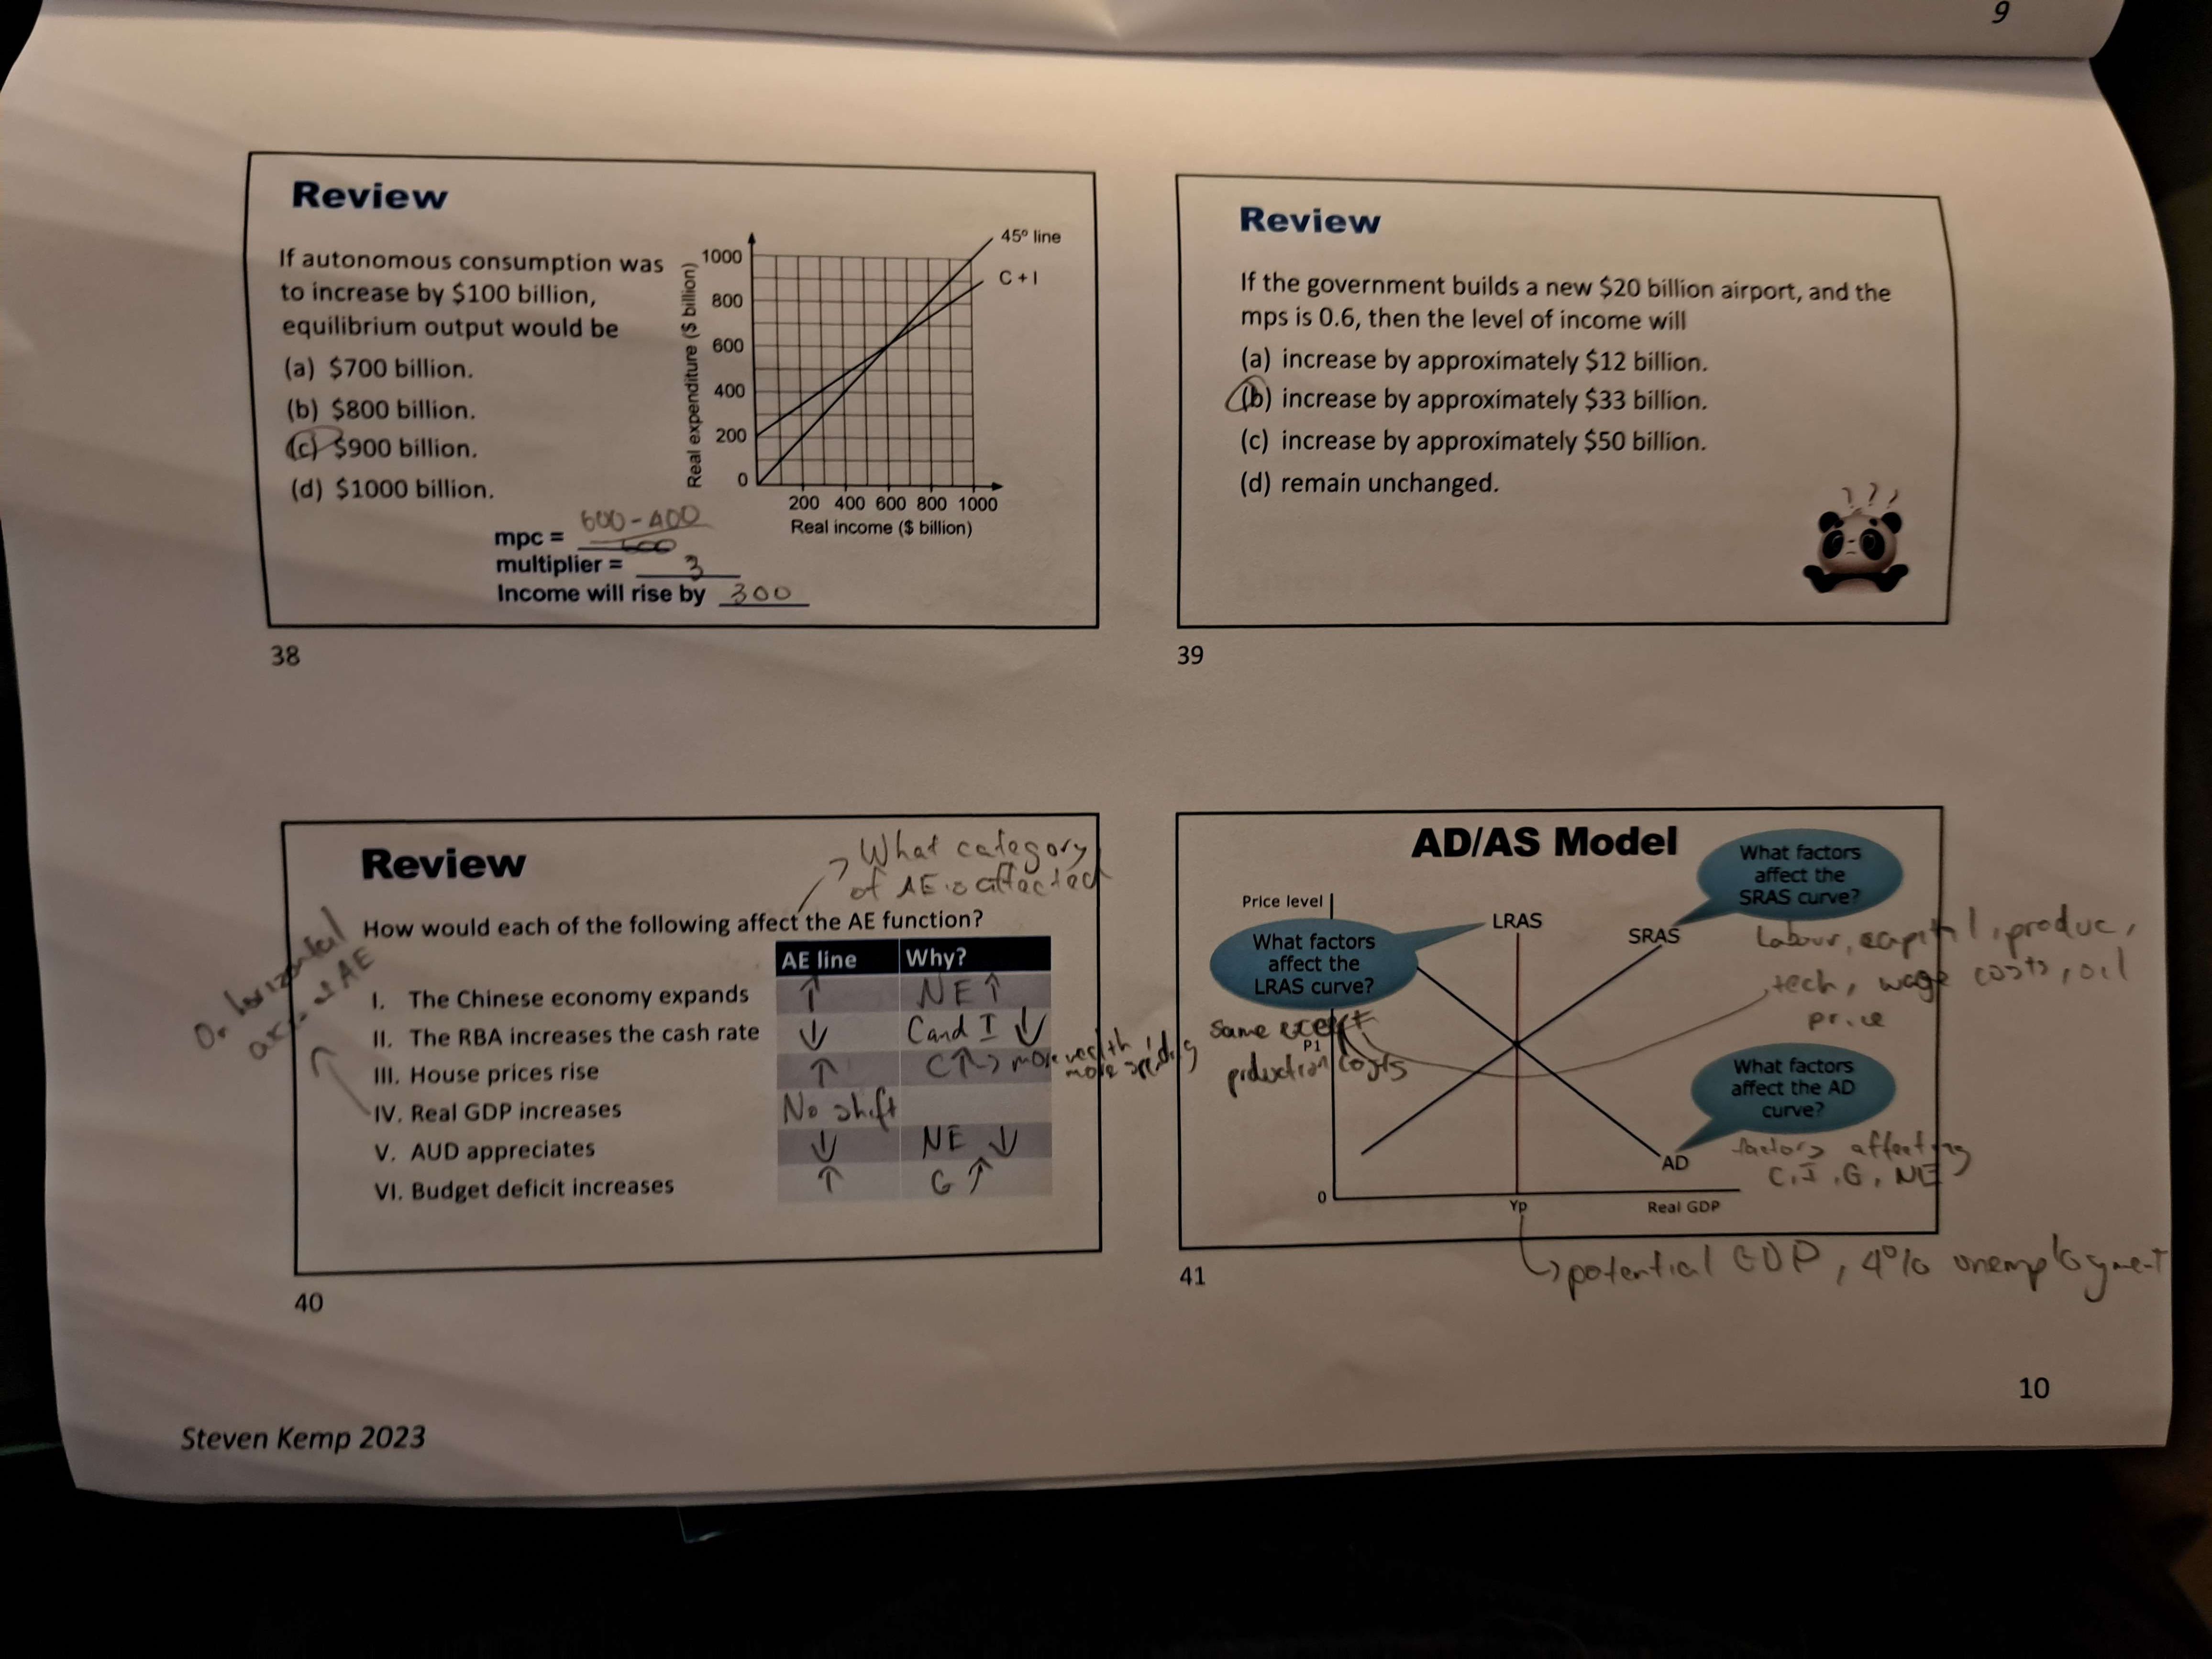 9
Review
If autonomous consumption was
to increase by $100 billion,
equilibrium output would be
(a) $700 billion.
(b) $800 billion.
(c) $900 billion.
(d) $1000 billion.
Real expenditure ($ billion)
1000
800
600
400
200
0
45° line
C + I
200 400 600 800 1000
Real income ($ billion)
mpc = 600-400
multiplier = 3
Income will rise by 300
38
Review
If the government builds a new $20 billion airport, and the
mps is 0.6, then the level of income will
(a) increase by approximately $12 billion.
(b) increase by approximately $33 billion.
(c) increase by approximately $50 billion.
(d) remain unchanged.
???
39
Review
What category
of AE is affected
How would each of the following affect the AE function?
AE line Why?
I. The Chinese economy expands ↑ NE ↑
II. The RBA increases the cash rate ↓ C and I ↓
III. House prices rise ↑ C↑ → more wealth
more spending
IV. Real GDP increases No shift
V. AUD appreciates ↓ NE ↓
VI. Budget deficit increases ↑ G ↑
On horizontal
axis of AE
40
AD/AS Model
Price level
What factors
affect the
LRAS curve?
LRAS
SRAS
What factors
affect the
SRAS curve?
Labour, capital, produc,
tech, wage costs, oil
price
same except
P1
production costs
What factors
affect the AD
curve?
AD
factors affecting
C, I, G, NE
0
Yp
Real GDP
potential GDP, 4% unemployment
41
10
Steven Kemp 2023